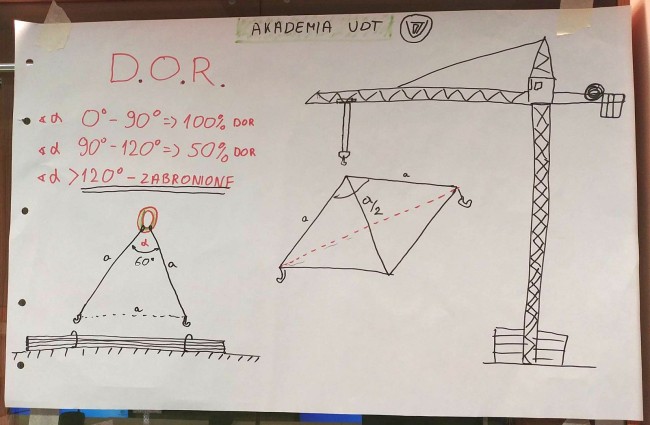 AKADEMIA UDT
D.O.R.
∢ α 0° - 90° => 100% DOR
∢ α 90° - 120° => 50% DOR
∢ α > 120° - ZABRONIONE
a
a/2
a
α
60°
a
a